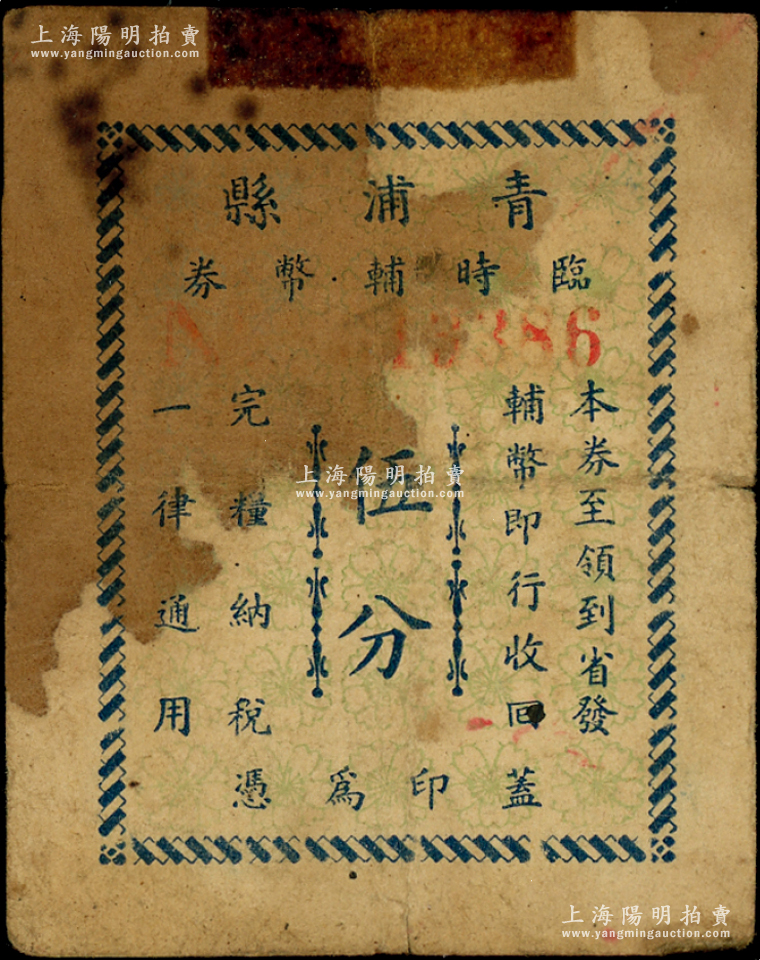 上海陽明拍賣
www.yangmingauction.com
青浦縣
臨時輔幣券
本券至領到省發
輔幣即行收回
伍分
完糧納稅
一律通用
蓋印為憑
上海陽明拍賣
www.yangmingauction.com
上海陽明拍賣
www.yangmingauction.com